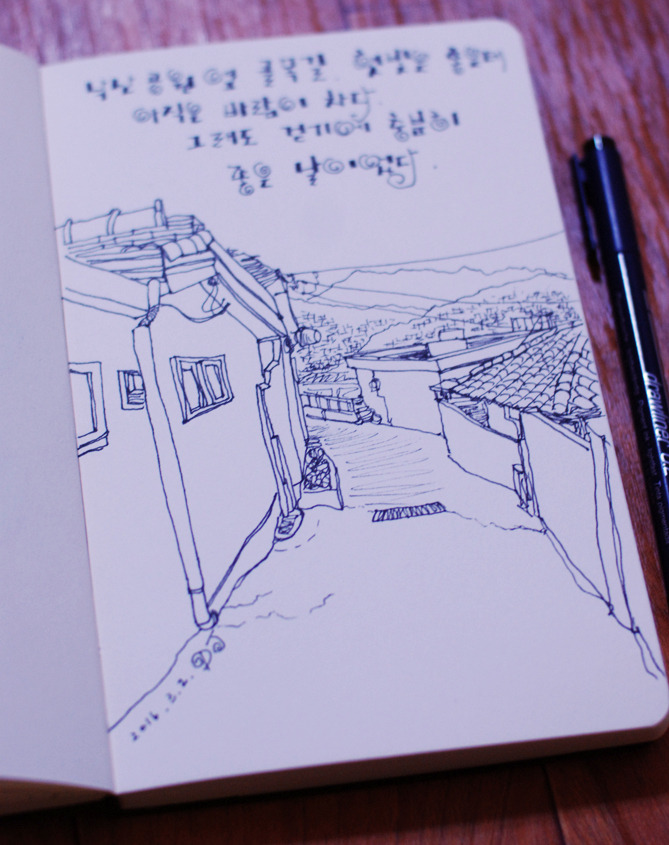 낙산 공원 옆 골목길. 햇빛은 좋은데
아직은 바람이 차다.
그래도 걷기에 충분히
좋은 날이었다.
2016. 3. 2.